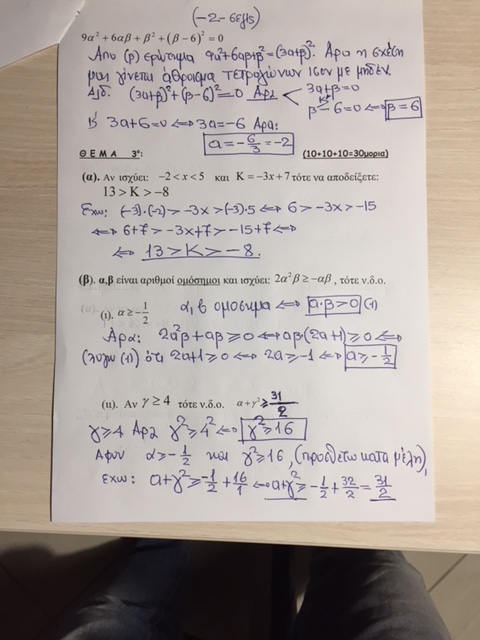 (-2-σελίς)
9α² + 6αβ + β² + (β - 6)² = 0
Απο (β) ερώτημα 9α²+6αβ+β² = (3α+β)². Άρα η σχέση
μας γίνεται άθροισμα τετραγώνων ισον με μηδέν.
Δηλ. (3α+β)²+(β-6)²=0 Άρα 3α+β=0
β-6=0 ⟺ β=6
3α+6=0 ⟺ 3α=-6 Αρα:
α=-6/3=-2
ΘΕΜΑ 3º: (10+10+10=30μορια)
(α). Αν ισχύει: -2 < x < 5 και K = -3x + 7 τότε να αποδείξετε:
13 > K > -8
Εχω: (-3)·(-2) > -3x > (-3)·5 ⟺ 6 > -3x > -15
⟺ 6+7 > -3x+7 > -15+7 ⟺
⟺ 13 > K > -8.
(β). α,β είναι αριθμοί ομόσημοι και ισχύει: 2α²β ≥ -αβ, τότε ν.δ.ο.
(ι). α ≥ -1/2 α, β ομοσημα ⟺ α·β > 0 (1)
Αρα: 2α²β+αβ ≥ 0 ⟺ αβ·(2α+1) ≥ 0 ⟺
(λογω (1)) ότι 2α+1 ≥ 0 ⟺ 2α ≥ -1 ⟺ α ≥ -1/2
(ιι). Αν γ ≥ 4 τότε ν.δ.ο. α+γ² ≥ 31/2
γ ≥ 4 Αρα γ² ≥ 4² ⟺ γ² ≥ 16
Αφου α ≥ -1/2 και γ² ≥ 16, (προσθετω κατα μέλη),
εχω: α+γ² ≥ -1/2+16/1 ⟺ α+γ² ≥ -1/2+32/2=31/2